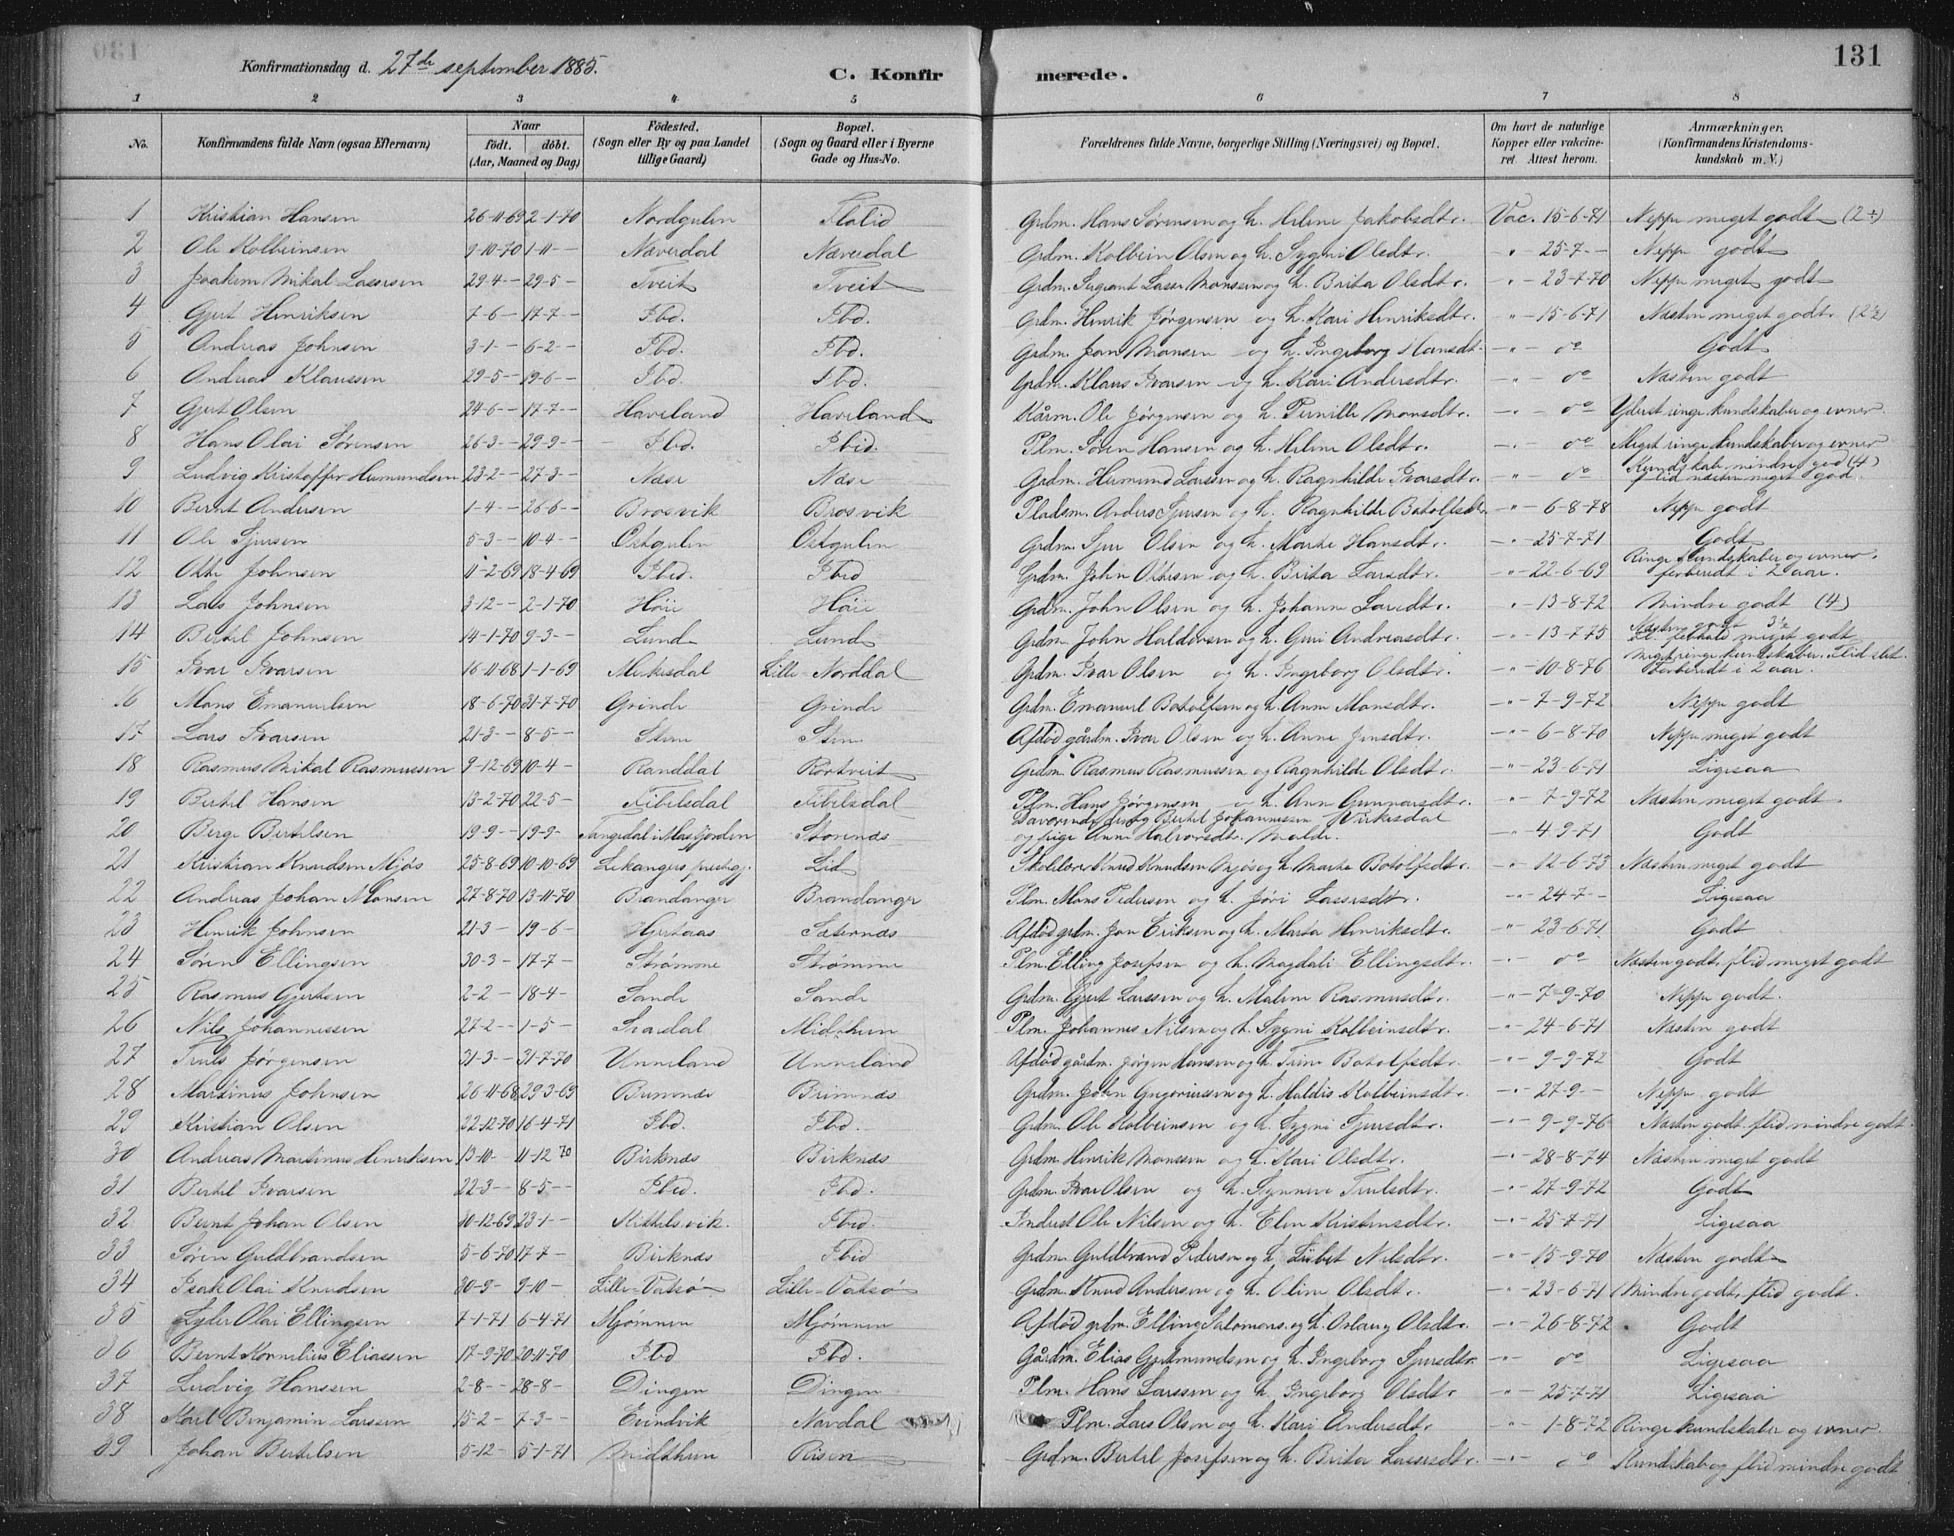 131
Konfirmationsdag d. 27de september 1885.
C. Konfir merede.
1 2 3 4 5 6 7 8
No. Konfirmandens fulde Navn (ogsaa Efternavn) Naar født. døbt. (Aar, Maaned og Dag) Fødested. (Sogn eller By og paa Landet tillige Gaard) Bopæl. (Sogn og Gaard eller i Byerne Gade og Hus-No. Forældrenes fulde Navne, borgerlige Stilling (Næringsvei) og Bopæl. Om havt de naturlige Kopper eller vakcineret. Attest herom. Anmærkninger. (Konfirmandens Kristendomskundskab m. V.)
1 Kristian Hansen 26-11-69 2-1-70 Nordgulen Flolid Grdm. Hans Sørensen og h. Helene Jakobsdtr. Vac. 15-6-71 Neppe meget godt (2÷)
2 Ole Kolbeinsen 9-10-70 1-11-- Næverdal Næverdal Grdm. Kolbein Olsen og h. Sygni Olsdtr. " 25-7-- Neppe godt
3 Joakim Mikal Lassesen 29-4-- 29-5- Tveit Tveit Grdm. Sergeant Lasse Monsen og h. Brita Olsdtr. " 23-7-70 Neppe meget godt
4 Gjert Henriksen 7-6-- 17-7-- Ibd. Ibd. Grdm. Henrik Jørgensen og h. Kari Henriksdtr. " 15-6-71 Næsten meget godt (2½)
5 Andreas Johnsen 3-1-- 6-2-- Ibd. Ibd. Grdm. Jon Monsen og h. Ingeborg Hansdt. " do Godt
6 Andreas Klaussen 29-5-- 19-6-- Ibd. Ibd. Grdm. Klaus Ivarsen og h. Kari Andersdtr. " do Næsten godt
7 Gjert Olsen 24-6-- 17-7-- Haveland Haveland Kårm. Ole Jørgensen og h. Pernille Monsdtr. " do Yderst ringe kundskaber og evner.
8 Hans Olai Sørensen 26-3-- 29-9-- Ibd. Ibid. Plm. Søren Hansen og h. Helene Olsdtr. " do Meget ringe kundskaber og evner
9 Ludvig Kristoffer Hermundsen 23-2-- 27-3-- Næse Næse Grdm. Hermund Larssen og h. Ragnhilde Ivarsdtr. " do Kundskab mindre god (4) flid næsten meget god.
10 Bernt Andersen 1-4-- 26-6-- Brosvik Brosvik Pladsm. Anders Sjursen og h. Ragnhilde Botolfsdtr. " 6-8-78 Neppe godt
11 Ole Sjursen 5-3-- 10-4-- Østgulen Østgulen Grdm. Sjur Olsen og h. Marte Hansdtr. " 25-7-71 Godt
12 Otte Johnsen 11-2-69 18-4-69 Ibid. Ibid Grdm. John Ottesen og h. Brita Larsdtr. " 22-6-69 Ringe kundskaber og evner, forberedt i 2 aar.
13 Lars Johnsen 3-12-- 2-1-70 Høie Høie Grdm. John Olsen og h. Johanne Larsdtr. " 13-8-72 Mindre godt (4)
14 Bertel Johnsen 14-1-70 9-3-- Lund Lund Grdm. John Haldorsen og h. Guri Andreasdtr. " 13-7-75 Næsten godt 3½ meget godt
15 Ivar Ivarsen 16-11-68 1-1-69 Lille-Norddal Grdm. Ivar Olsen og h. Ingeborg Olsdtr. " 10-8-76 Meget ringe kundskaber. Flid slet. Forberedt i 2 aar.
16 Mons Emanuelsen 18-6-70 31-7-70 Grinde Grinde Grdm. Emanuel Botolfsen og h. Anne Monsdtr. " 7-9-72 Neppe godt
17 Lars Ivarsen 21-3-- 8-5-- Steen Steen Afdød gårdm. Ivar Olsen og h. Anne Jensdtr. " 6-8-70 Neppe meget godt
18 Rasmus Mikal Rasmussen 9-12-69 10-4-- Randdal Rørtveit Grdm. Rasmus Rasmussen og Ragnhilde Olsdtr. " 23-6-71 Ligesaa
19 Bertel Hansen 13-2-70 22-5-- Tibelsdal Tibelsdal Plm. Hans Jørgensen og h. Anne Gunnarsdtr. " 7-9-72 Næsten meget godt.
20 Berge Bertelsen 19-9-- 19-9- Tangedal i Masfjorden Storenæs Bertel Johannessen Virkesdal og pige Anne Halvorsdtr. Molde. " 4-9-71 Godt
21 Kristian Knudsen Mjøs 25-8-69 10-10-69 Lekangers prestegj. Lid Skolelærer Knud Knudsen Mjøs og h. Marte Botolfsdtr. " 12-6-73 Næsten meget godt
22 Andreas Johan Monsen 27-8-70 13-11-70 Brandanger Brandanger Plm. Mons Pedersen og h. Jøri Lassesdtr. " 24-7-- Ligesaa
23 Henrik Johnsen 21-3-- 19-6-- Hjertaas Sæternæs Afdød grdm. Jon Eriksen og h. Marta Henriksdtr. " 23-6-71 Godt
24 Søren Ellingsen 30-3-- 17-7-- Strømme Strømme Plm. Elling Josefsen og h. Magdali Ellingsdtr. " do Næsten godt, flid meget godt
25 Rasmus Gjertsen 2-2-- 18-4- Sande Sande Grdm. Gjert Larssen og h. Malene Rasmusdtr. " 7-9-70 Neppe godt.
26 Nils Johannessen 27-2-- 1-5-- Svardal Midthun Plm. Johannes Nilsen og h. Sygni Kolbeinsdtr. " 24-6-71 Næsten godt
27 Truls Jørgensen 21-3-- 31-7-70 Unneland Unneland Afdød gårdm. Jørgen Hansen og h. Trine Botolfsdtr. " 9-9-72 Godt
28 Martinus Johnsen 26-11-68 29-3-69 Brimnæs Brimnæs Grdm. John Gregoriussen og h. Haldis Kolbeinsdtr. " 27-9-- Neppe godt
29 Kristian Olsen 22-12-70 16-4-71 Ibd. Ibd. Grdm. Ole Kolbeinsen og h. Sygni Sjursdtr. " 9-9-76 Næsten godt. flid mindre godt.
30 Andreas Martinus Henriksen 13-10-- 11-12 70 Birknæs Birknæs Grdm. Henrik Monssen og h. Kari Olsdtr. " 28-8-74 Næsten meget godt
31 Bertel Ivarsen 22-3-- 8-5-- Ibid. Ibd. Grdm. Ivar Olsen og h. Synneve Trulsdtr. " 27-9-72 Godt
32 Bernt Johan Olsen 30-12-69 23-1-- Kittelsvik. Ibid. Inderst Ole Nilsen og h. Elen Kristensdtr. " 25-7-71 Ligesaa
33 Søren Guldbrandsen 5-6-70 17-7-- Birknæs Ibid Grdm. Guldbrand Pedersen og h. Lisbet Nilsdtr. " 15-9-70 Næsten godt
34 Isak Olai Knudsen 30-9-- 9-10-- Lille-Vatsø Lille-Vatsø Grdm. Knud Andersen og h. Oline Olsdtr. " 23-6-71 Mindre godt, flid godt.
35 Lyder Olai Ellingsen 7-1-71 6-4-71 Mjømnen Mjømnen Afdød grdm. Elling Salomons. og h. Oslaug Olsdtr. " 26-8-72 Godt
36 Bernt Kornelius Eliassen 17-9-70 20-11-70 Ibd Ibd. Gårdm. Elias Gjetmundsen og h. Ingeborg Sjursdtr. " do Ligesaa
37 Ludvig Hanssen 2-8-- 28-8-- Dingen Dingen Plm. Hans Larssen og h. Ingeborg Olsdtr. " 25-7-71 Ligesaa
38 Karl Benjamin Larsen 15-2-- 7-3-- Evindvik Navdal Plm. Lars Olsen og h. Kari Andersdtr. " 1-8-72 Ringe kundskaber og evner.
39 Johan Bertelsen 5-12-- 5-1-71 Midthun Risen Grdm. Bertel Josefsen og h. Brita Lassesdtr. " do Kundskab og flid mindre godt